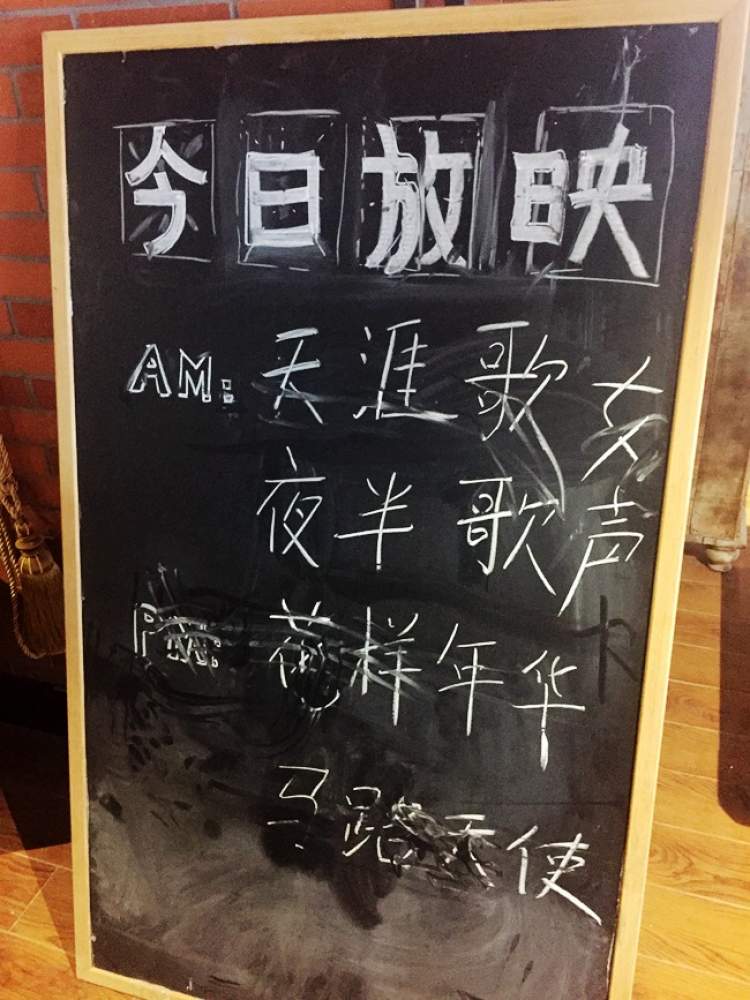 今日放映
AM: 天涯歌女
夜半歌声
PM: 花样年华
马路天使